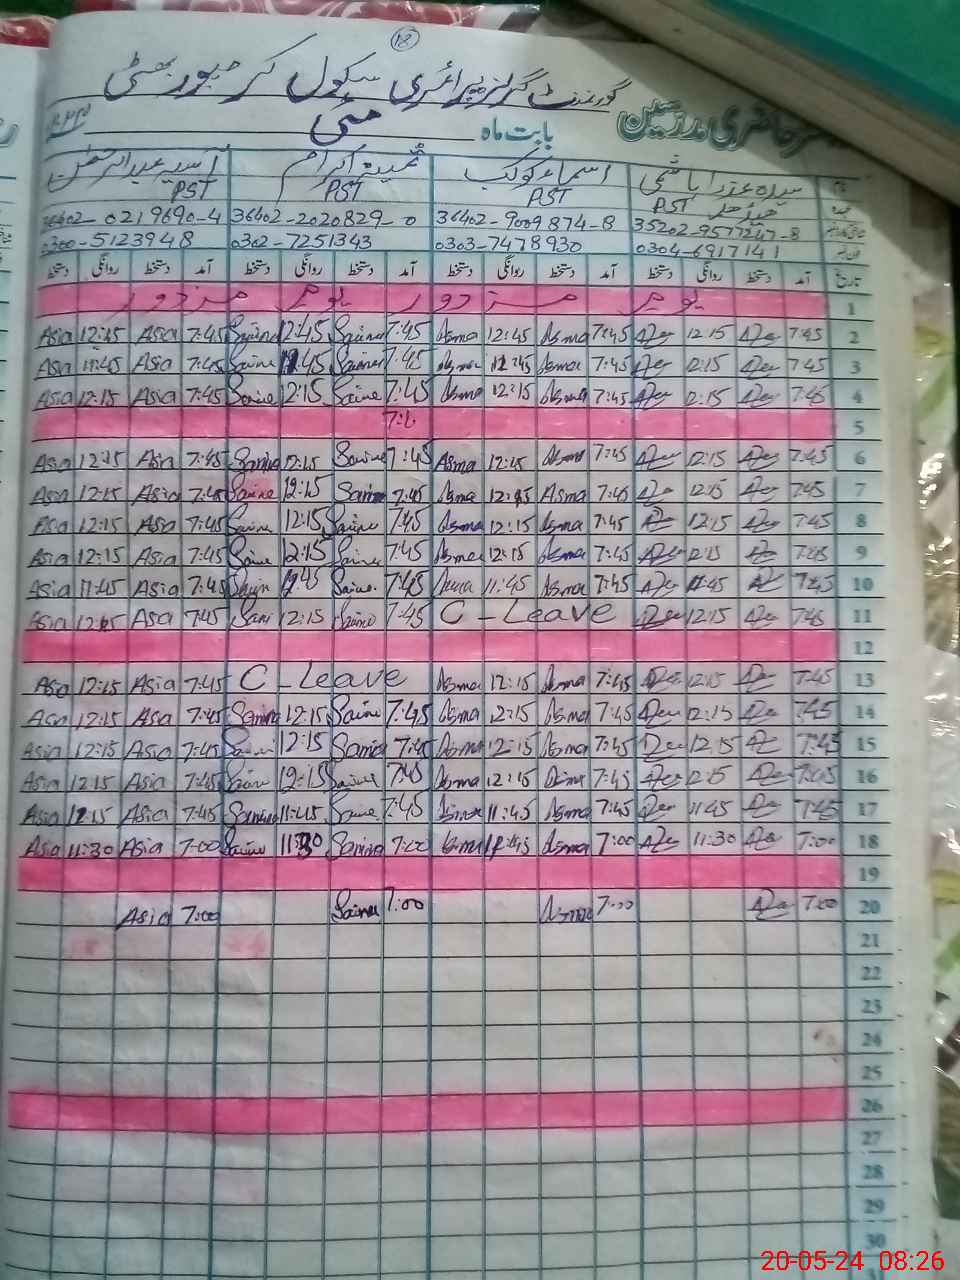 18
گورنمنٹ گرلز پرائمری سکول کرمپور بھٹی
حاضری مدرسین بابت ماہ مئی
سیدہ عذرا ہاشمی اسماء کوکب ثمینہ اکرام آسیہ عبدالرحمن
PST PST PST PST
35202-9577247-8 36402-9009874-8 36402-2020829-0 36402-0219690-4
0304-6917141 0303-7478930 0302-7251343 0300-5123948
تاریخ آمد دستخط روانگی دستخط آمد دستخط روانگی دستخط آمد دستخط روانگی دستخط آمد دستخط روانگی دستخط
یوم مزدور یوم مزدور 1
Asia 12:15 Asia 7:45 Saima 12:45 Saima 7:45 Asma 12:45 Asma 7:45 12:15 7:45 2
Asia 11:45 Asia 7:45 Saima 11:45 Saima 7:45 Asma 12:45 Asma 7:45 12:15 7:45 3
Asia 12:15 Asia 7:45 Saima 12:15 Saima 7:45 Asma 12:15 Asma 7:45 12:15 7:45 4
5
Asia 12:15 Asia 7:45 Saima 12:15 Saima 7:45 Asma 12:15 Asma 7:45 12:15 7:45 6
Asia 12:15 Asia 7:45 Saima 12:15 Saima 7:45 Asma 12:15 Asma 7:45 12:15 7:45 7
Asia 12:15 Asia 7:45 Saima 12:15 Saima 7:45 Asma 12:15 Asma 7:45 12:15 7:45 8
Asia 12:15 Asia 7:45 Saima 12:15 Saima 7:45 Asma 12:15 Asma 7:45 12:15 7:45 9
Asia 11:45 Asia 7:45 Saima Saima 7:45 Asma 11:45 Asma 7:45 11:45 7:45 10
Asia 12:15 Asia 7:45 Saima 12:15 Saima 7:45 C-Leave 12:15 7:45 11
12
Asia 12:15 Asia 7:45 C-Leave Asma 12:15 Asma 7:45 12:15 7:45 13
Asia 12:15 Asia 7:45 Saima 12:15 Saima 7:45 Asma 12:15 Asma 7:45 12:15 7:45 14
Asia 12:15 Asia 7:45 Saima 12:15 Saima 7:45 Asma 12:15 Asma 7:45 12:15 7:45 15
Asia 12:15 Asia 7:45 Saima 12:15 Saima 7:45 Asma 12:15 Asma 7:45 12:15 7:45 16
Asia 12:15 Asia 7:45 Saima 11:45 Saima 7:45 Asma 11:45 Asma 7:45 11:45 7:45 17
Asia 11:30 Asia 7:00 Saima 11:30 Saima 7:00 Asma Asma 7:00 11:30 7:00 18
19
Asia 7:00 Saima 7:00 Asma 7:00 7:00 20
21
22
23
24
25
26
27
28
29
30
31
20-05-24 08:26